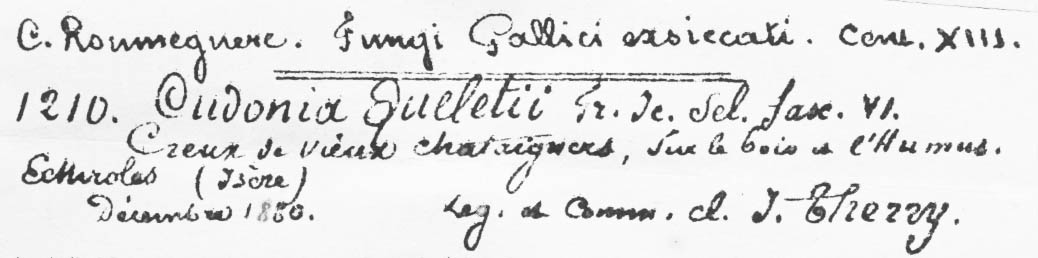 C. Roumeguere. Fungi Gallici exsiccati. Cent. XIII.
1210. Cudonia Queletii Fr. Ic. Sel. fasc. VI.
Creux de vieux chataigners, sur le bois et l'Humus.
Echiroles (Isère)
Décembre 1880. Leg. et Comm. cl. J. Therry.